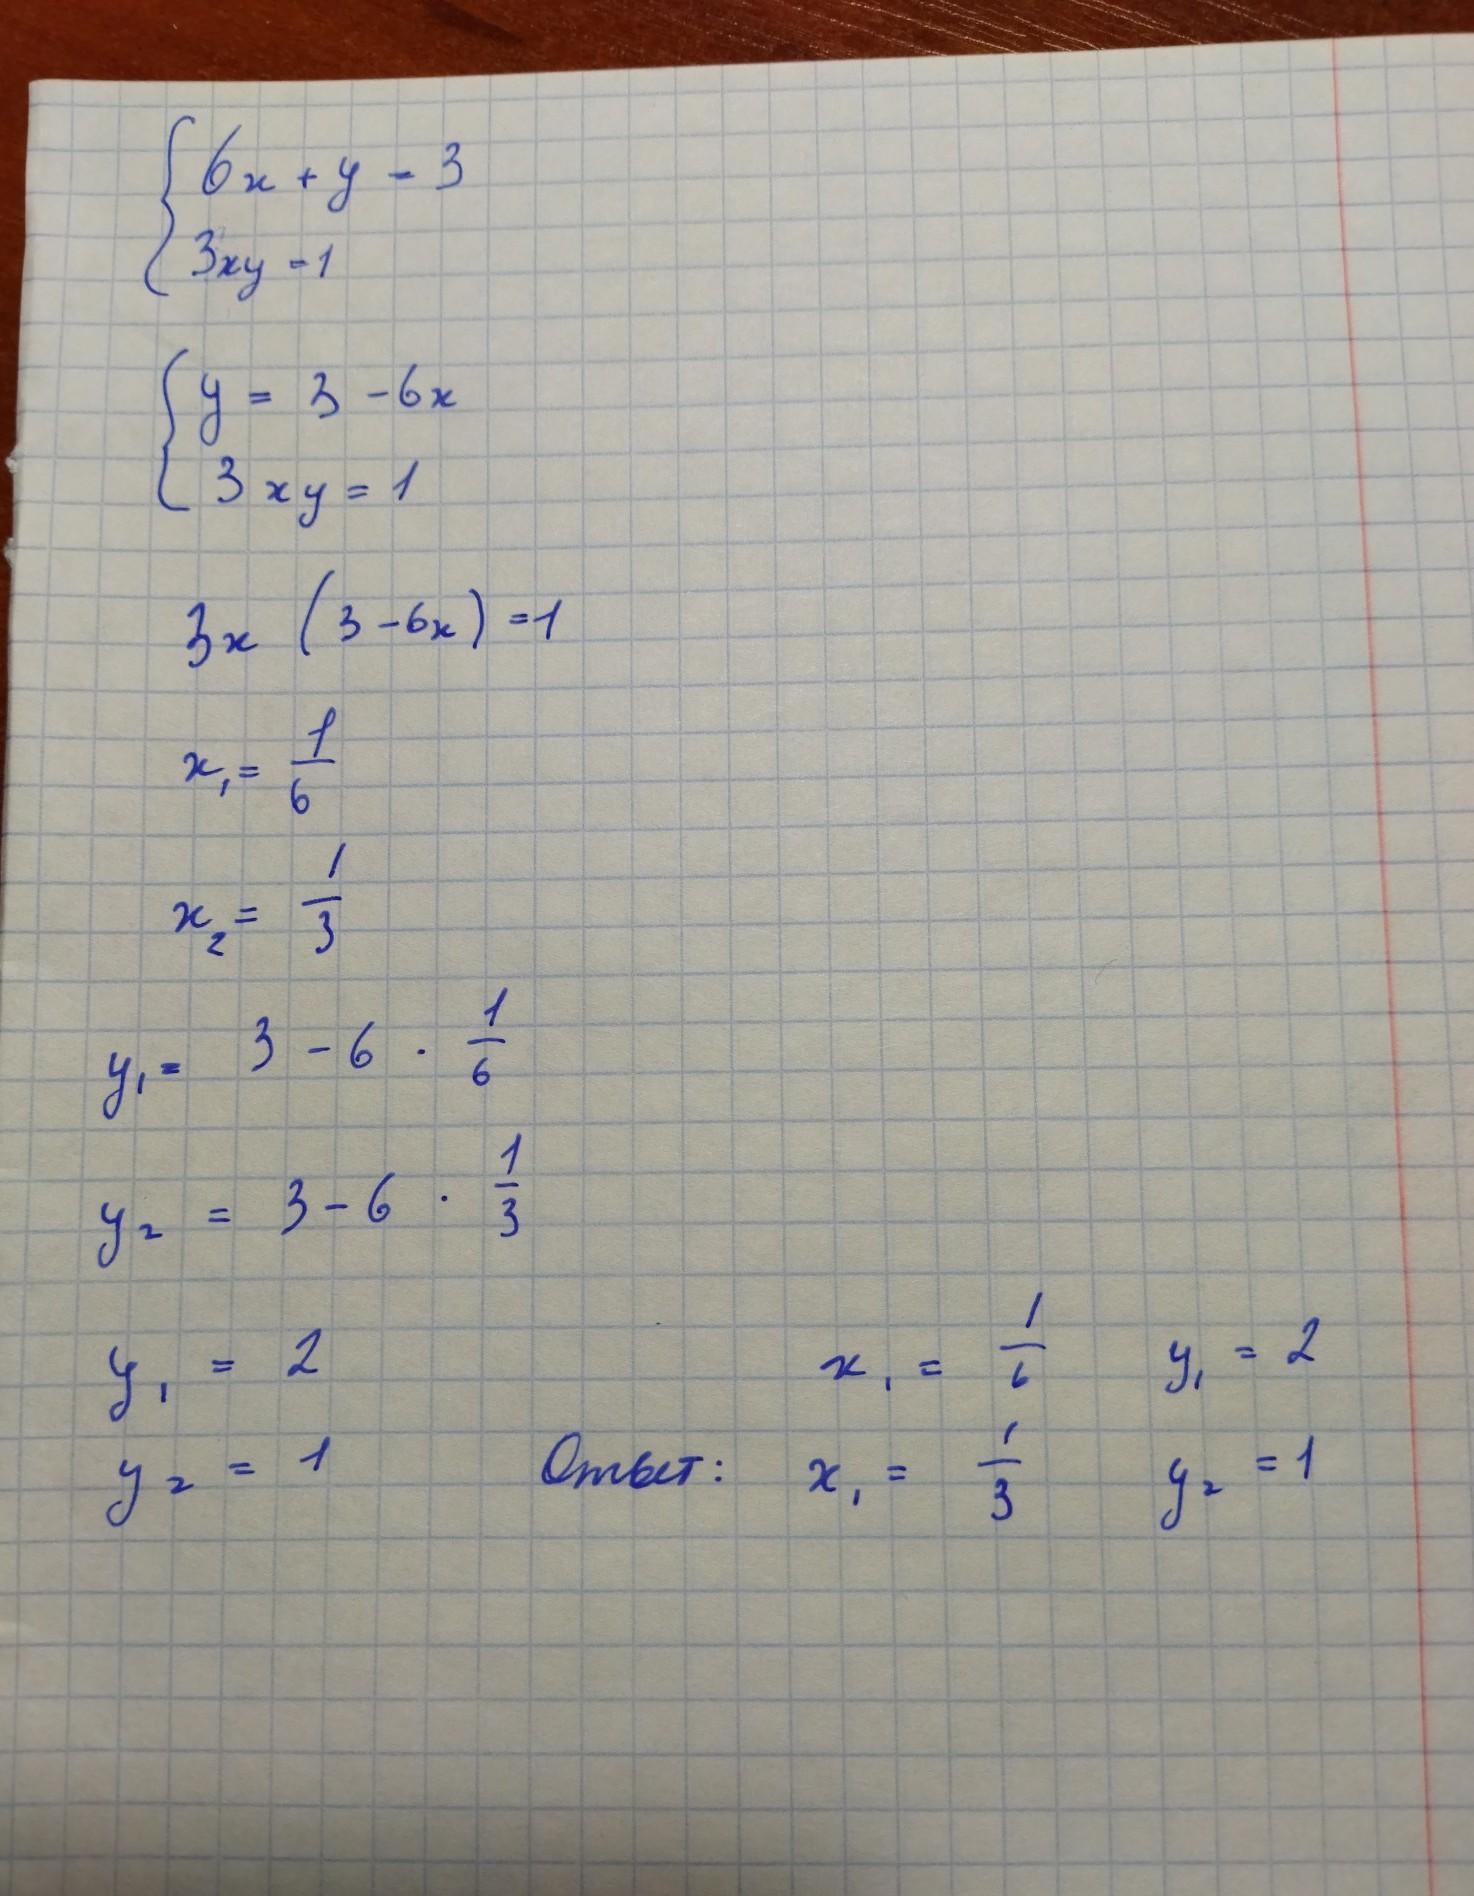 6x + y - 3
3xy = 1
y = 3 - 6x
3xy = 1
3x (3 - 6x) = 1
x₁ = 1/6
x₂ = 1/3
y₁ = 3 - 6 · 1/6
y₂ = 3 - 6 · 1/3
y₁ = 2
y₂ = 1
x₁ = 1/6 y₁ = 2
Ответ: x₁ = 1/3 y₂ = 1